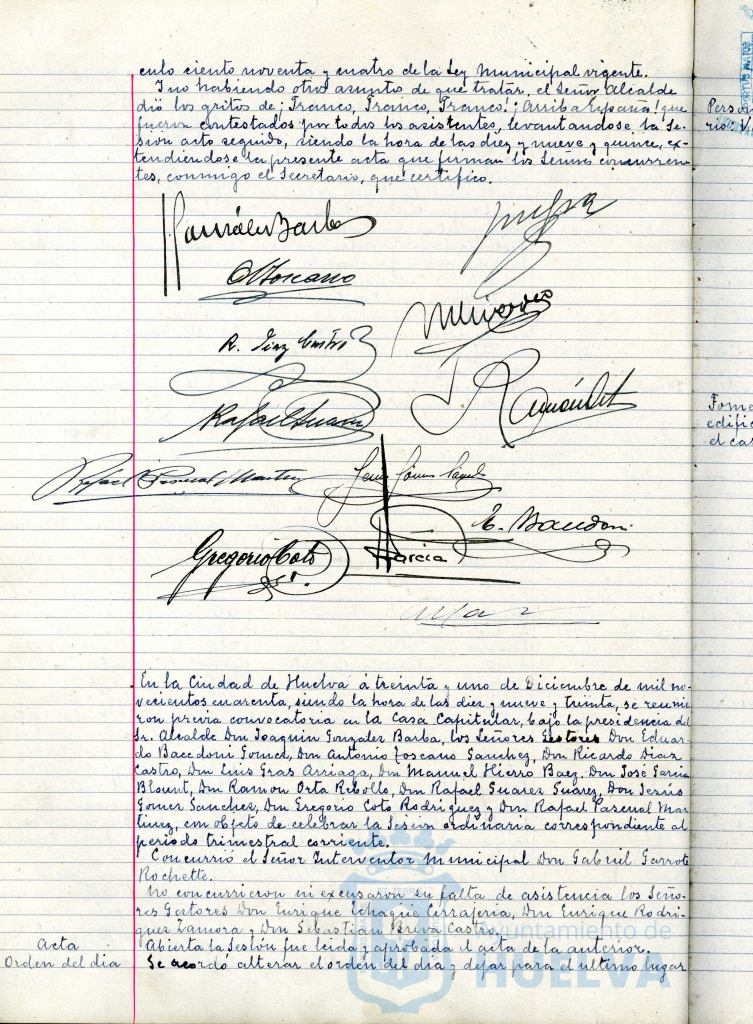 culo ciento noventa y cuatro de la Ley Municipal vigente.
Y no habiendo otro asunto de que tratar, el Señor Alcalde
dió los gritos de ¡Franco, Franco, Franco! ¡Arriba España! que
fueron contestados por todos los asistentes, levantandose la Se-
sion acto seguido, siendo la hora de las diez y nueve y quince, ex-
tendiendose la presente acta que firman los Señores concurren-
tes, conmigo el Secretario, que certifico.
González Barba
A Toscano
R. Diaz Castro
Rafael Suarez
Ramón Orta
Rafael Pascual Martinez
Jesus Gómez Sanchez
E. Bacedoni
Gregorio Coto
Garcia
En la Ciudad de Huelva á treinta y uno de Diciembre de mil no-
vecientos cuarenta, siendo la hora de las diez y nueve y treinta, se reunie
ron previa convocatoria en la Casa Capitular, bajo la presidencia del
Sr. Alcalde Don Joaquin Gonzalez Barba, los Señores Gestores Don Eduar-
do Bacedoni Gomez, Don Antonio Toscano Sanchez, Don Ricardo Diaz
Castro, Don Luis Gras Arriaga, Don Manuel Hierro Baez, Don José Garcia
Blount, Don Ramon Orta Rebollo, Don Rafael Suarez Suárez, Don Jesús
Gomez Sanches, Don Gregorio Coto Rodriguez y Don Rafael Pascual Mar
tinez, con objeto de celebrar la Sesion ordinaria correspondiente al
periodo trimestral corriente.
Concurrió el Señor Interventor Municipal Don Gabriel Garrote
Rochette.
No concurrieron ni excusaron su falta de asistencia los Seño-
res Gestores Don Enrique Echagüe Cerrajeria, Don Enrique Rodri-
guez Zamora y Don Sebastián Breva Castro.
Acta
Abierta la Sesión fue leida y aprobada el acta de la anterior.
Orden del dia
Se acordó alterar el orden del dia y dejar para el ultimo lugar
Ayuntamiento de
HUELVA
Perso
Fome
edific
el cas